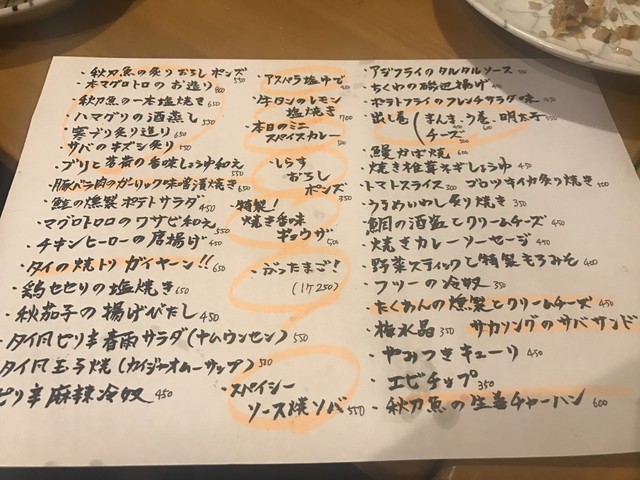 ・秋刀魚の炙りおろしポンズ 550
・本マグロトロのお造り 800
・秋刀魚の一本塩焼き 650
・ハマグリの酒蒸し 550
・寒ブリ炙り造り 650
・サバのキズシ炙り 550
・ブリと茗荷の香味しょうゆ和え 550
・豚バラ肉のガーリック味噌漬焼き 650
・鮭の燻製ポテトサラダ 450
・マグロトロロのワサビ和え 550
・チキンヒーローの唐揚げ 450
・タイの焼トリ ガイヤーン!! 650
・鶏セセリの塩焼き 650
・秋茄子の揚げびたし 450
・タイ風ピリ辛春雨サラダ(ヤムウンセン) 550
・タイ風玉子焼(カイジャオムーサップ) 550
ピリ辛麻辣冷奴 450
・アスパラ塩ゆで 450
・牛タンのレモン
塩焼き 700
・本日のミニ
スパイスカレー 500
・しらす
おろし
ポンズ 350
・特製!
焼き香味
ギョウザ 500
・ぶったまご!
(1ケ250)
・スパイシー
ソース焼ソバ 550
・アジフライのタルタルソース
・ちくわの磯辺揚げ 400
・ポテトフライのフレンチサラダ味 450
・出し巻(まんま、う巻、明太子 550
チーズ 500
・鰻かば焼 600
・焼き椎茸ネギしょうゆ 450
・トマトスライス 300 ・ゴロツキイカ炙り焼き 500
・うるめいわし炙り焼き 350
・鯛の酒盗とクリームチーズ 450
・焼きカレーソーセージ 450
・野菜スティックと特製もろみそ 400
・フツーの冷奴 350
・たくあんの燻製とクリームチーズ 450
・梅水晶 350 サカソングのサバサンド
・やみつきキューリ 450
・エビチップ 350
・秋刀魚の生姜チャーハン 600